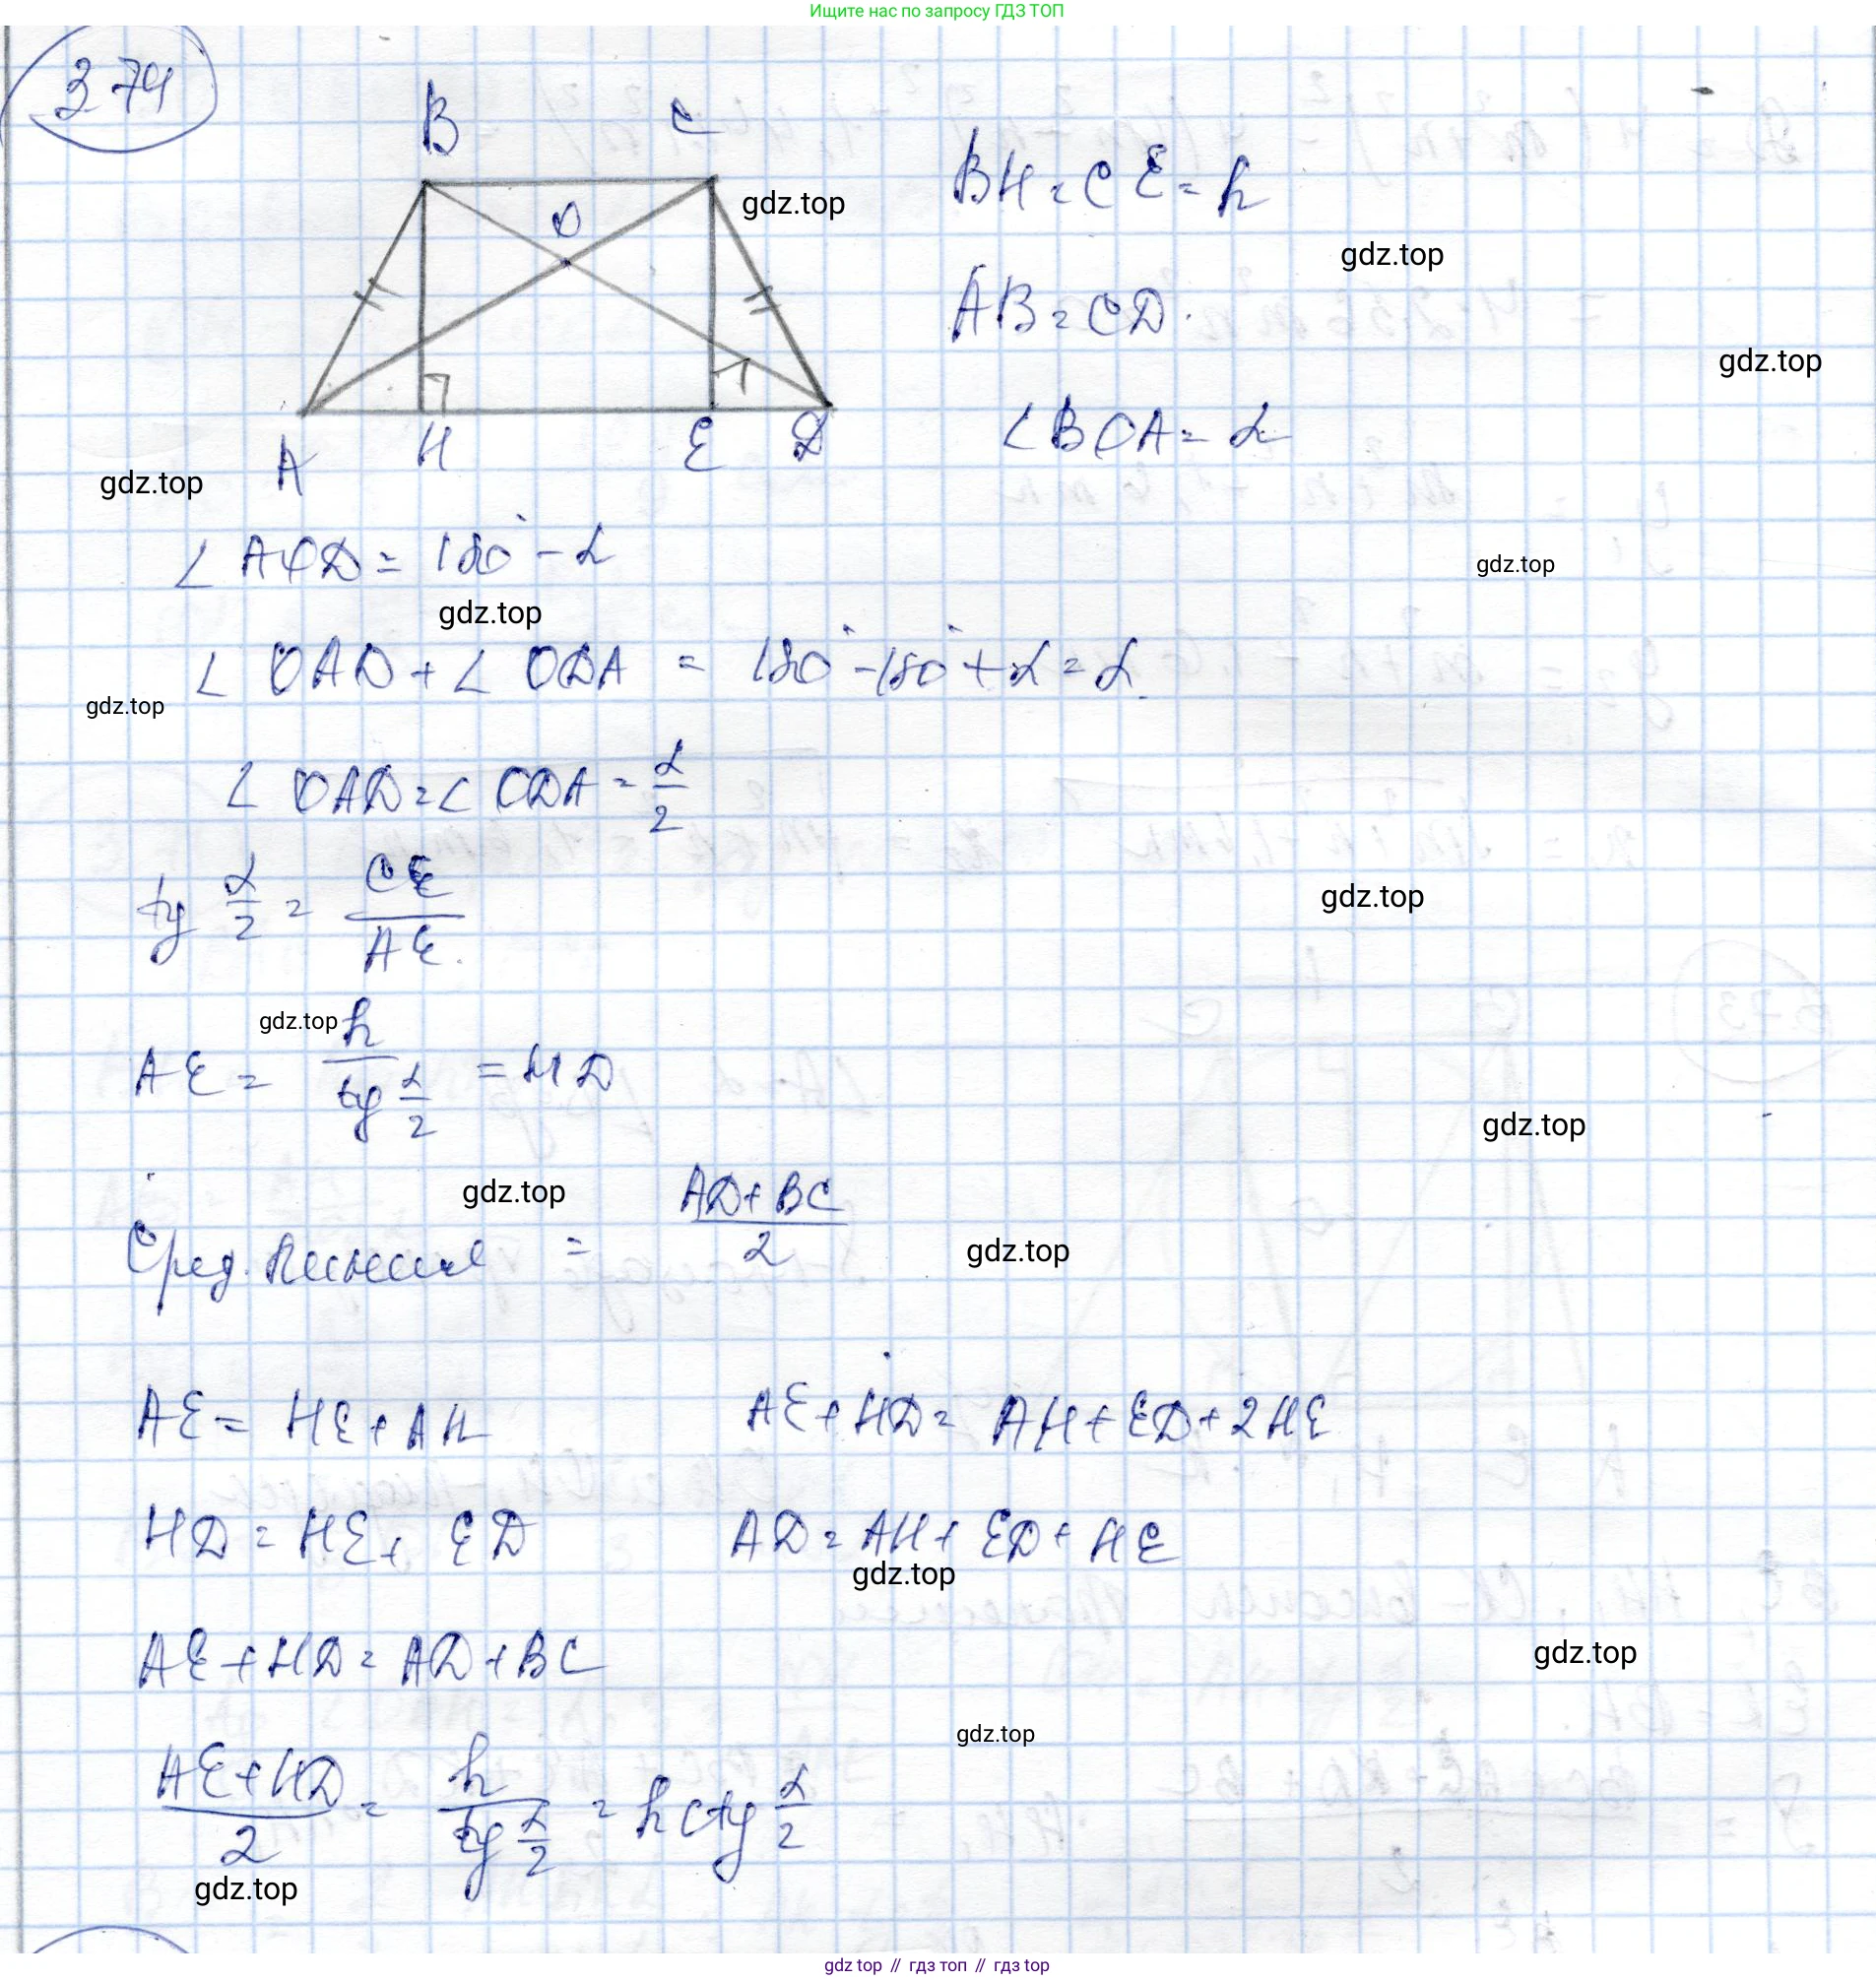 Ищите нас по запросу ГДЗ ТОП
3.74
B C
O
gdz.top
BH = CE = h
gdz.top
AB = CD.
gdz.top
∠BOA = α
A H E D
gdz.top
∠AOD = 180° - α
gdz.top
gdz.top
∠OAD + ∠ODA = 180° - 180° + α = α
gdz.top
∠OAD = ∠ODA = α/2
tg α/2 = CE/AE
gdz.top
gdz.top
AE = h/(tg α/2) = HD
gdz.top
gdz.top
Сред. линия = (AD + BC)/2
gdz.top
AE = HE + AH AE + HD = AH + ED + 2HE
HD = HE + ED AD = AH + ED + HE
gdz.top
AE + HD = AD + BC
gdz.top
gdz.top
(AE + HD)/2 = h/(tg α/2) = h ctg α/2
gdz.top
gdz top // гдз топ // гдз top